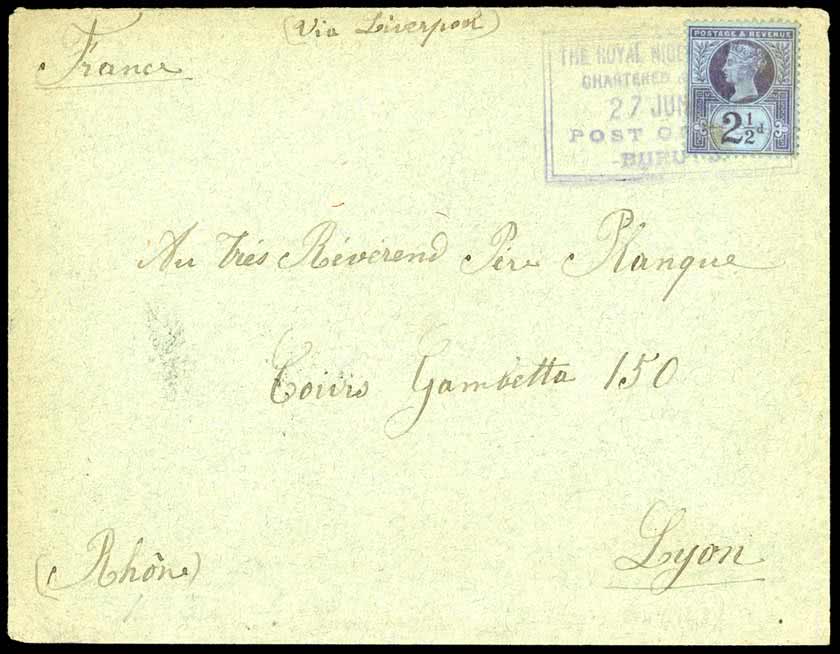 (Via Liverpool)
France
THE ROYAL
CHARTERED
27 JUN
POST
POSTAGE & REVENUE
2½d
Au Très Révérend Père Planque
Cours Gambetta 150
(Rhône)
Lyon